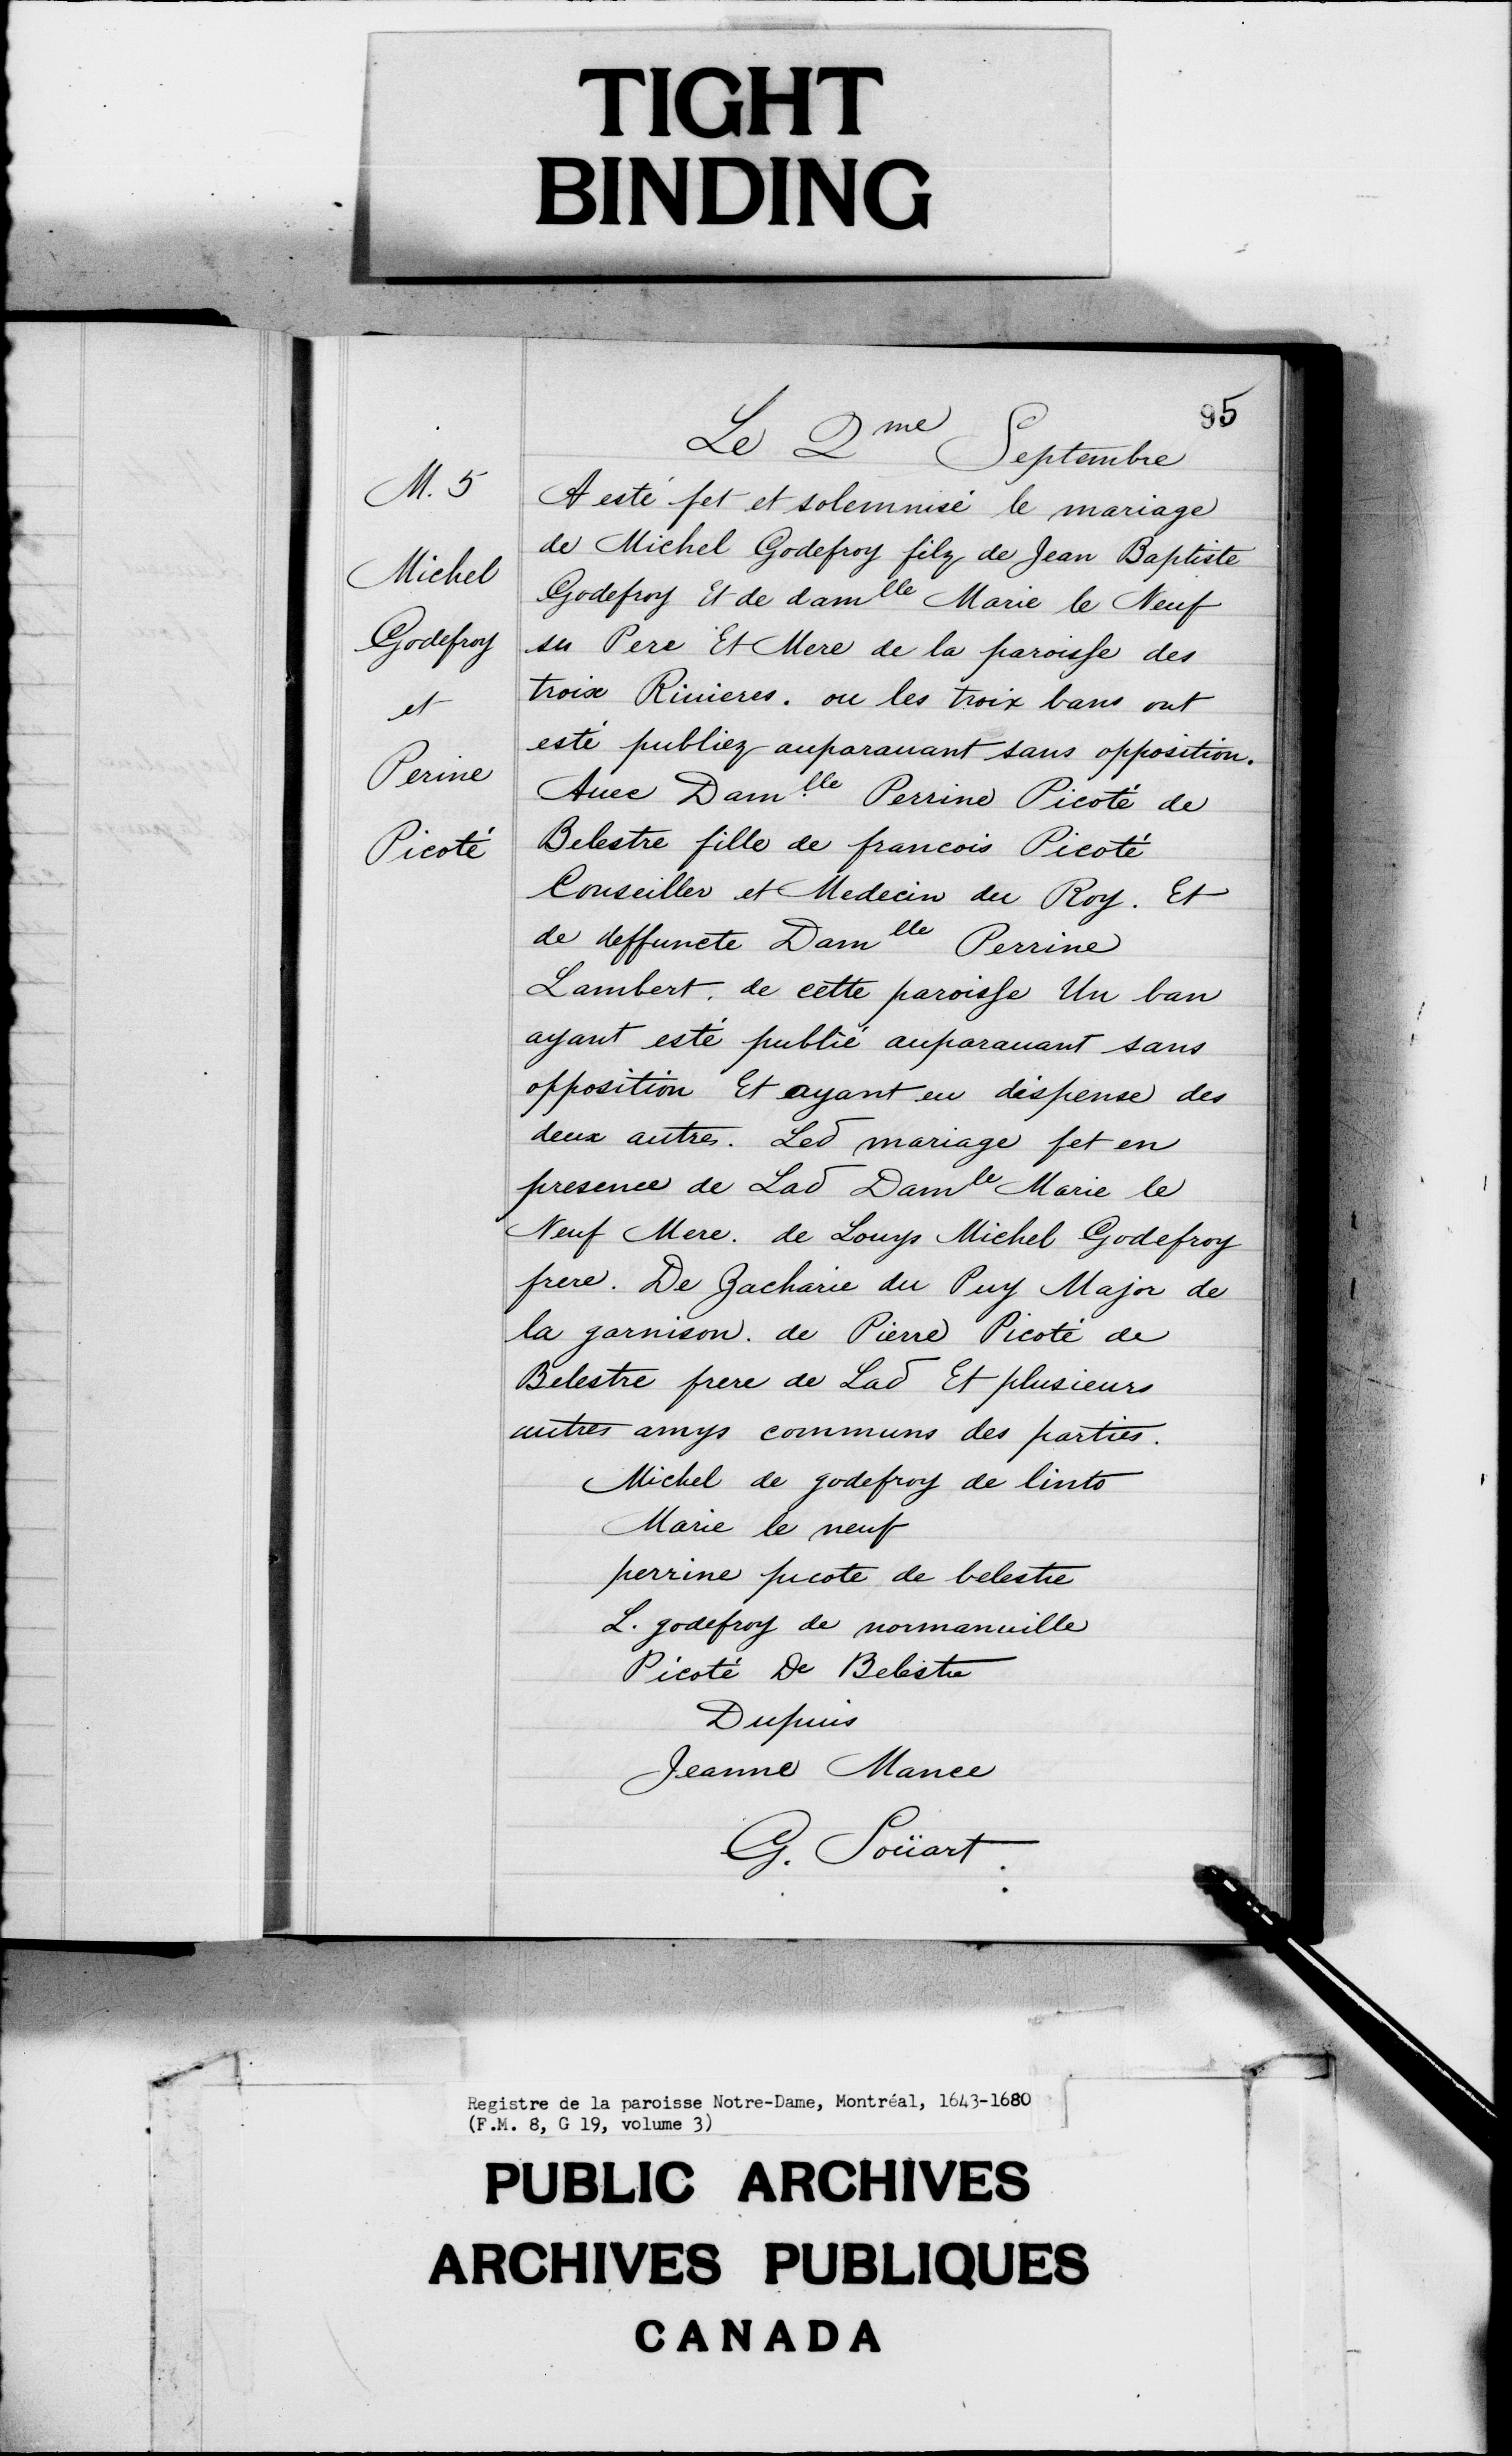 TIGHT
BINDING
95
Le 2me Septembre
M. 5
Michel
Godefroy
et
Perine
Picoté
A esté fet et solemnisé le mariage
de Michel Godefroy filz de Jean Baptiste
Godefroy Et de damlle Marie le Neuf
su Pere Et Mere de la paroisse des
troix Riuieres. ou les troix bans ont
esté publiez auparauant sans opposition.
Auec Damlle Perrine Picoté de
Belestre fille de francois Picoté
Conseiller et Medecin du Roy. Et
de deffuncte Damlle Perrine
Lambert. de cette paroisse Un ban
ayant esté publié auparauant sans
opposition Et ayant eu dispense des
deux autres. Led mariage fet en
presence de Lad Damle Marie le
Neuf Mere. de Louys Michel Godefroy
frere. De Zacharie du Puy Major de
la garnison. de Pierre Picoté de
Belestre frere de Lad Et plusieurs
autres amys communs des parties.
Michel de godefroy de linto
Marie le neuf
perrine picote de belestre
L. godefroy de normanuille
Picoté De Belestre
Dupuis
Jeanne Mance
G. Soüart
Registre de la paroisse Notre-Dame, Montréal, 1643-1680
(F.M. 8, G 19, volume 3)
PUBLIC ARCHIVES
ARCHIVES PUBLIQUES
CANADA